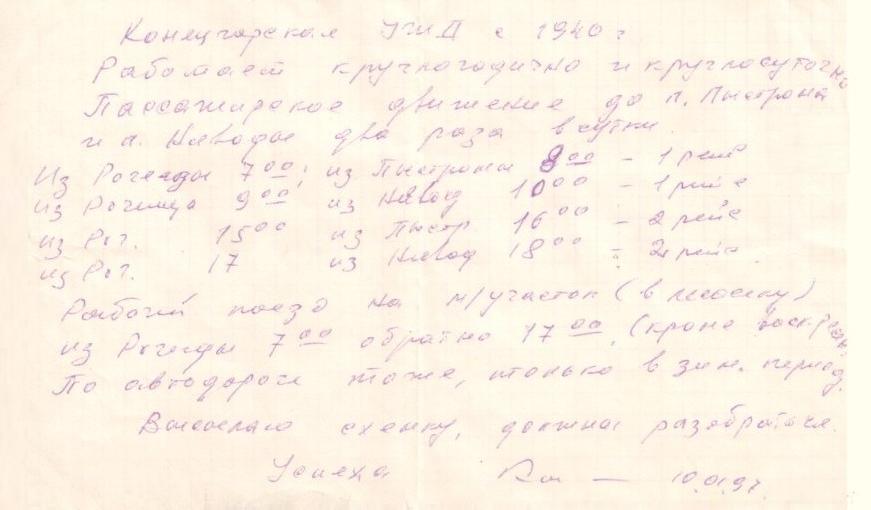 Конецгорская УЖД с 1940 г
Работает круглогодично и круглосуточно
Пассажирское движение до п. Пыстрома
и п. Неводы два раза в сутки.
Из Рочегды 7 00; из Пыстромы 8 00 – 1 рейс
из Рочегда 9 00 из Невод 10 00 – 1 рейс
из Роч. 15 00 из Пыстр. 16 00 – 2 рейс
из Роч. 17 из Невод 18 00 – 2 рейс.
Рабочий поезд на м/участок (в лесосеку)
из Рочегды 7 00 обратно 17 00. (кроме воскресен.
По автодороге тоже, только в зим. период.
Высылаю схемку, должны разобраться.
Успеха 10.01.97.